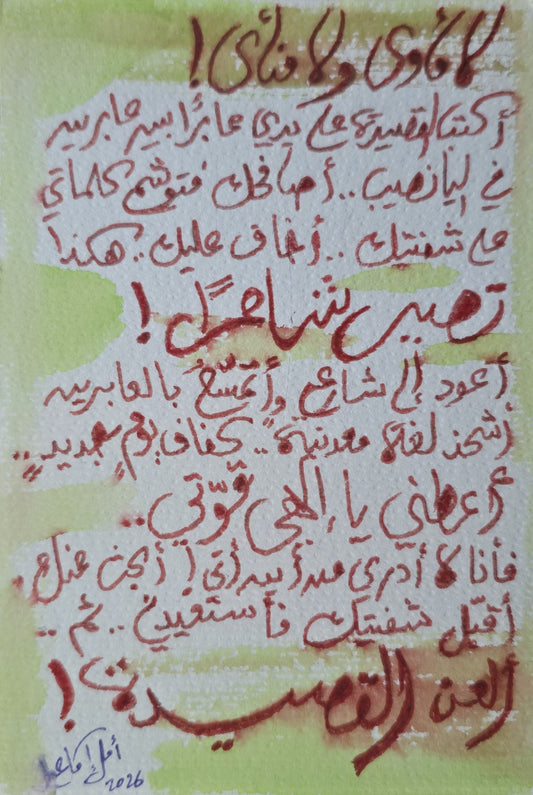 لا مأوى ولا منأى!
أكتب القصيدة على يدي عابرًا بين عابرين
في اليانصيب.. أصافحك فتوشم كلماتي
على شفتك.. أخاف عليك.. هكذا
تصير شاعرًا!
أعود إلى شارعي وأتمسّحُ بالعابرين
أشحذ لغة معدنية.. كفاف يومٍ جديدٍ..
أعطني يا إلهي قوّتي..
فأنا لا أدري من أين أتى! أبحث عنك.
أقبّل شفتيك فأستعيدني.. ثم..
ألعن القصيدة!
2026